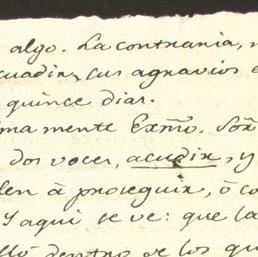 algo. La contraria, n
cuadir, sus agravios e
quince dias.
ma mente Exmo. Sor
dos voces, acudir, y
len à proseguir, ò co
Y aqui se ve: que la
dentro de los qu